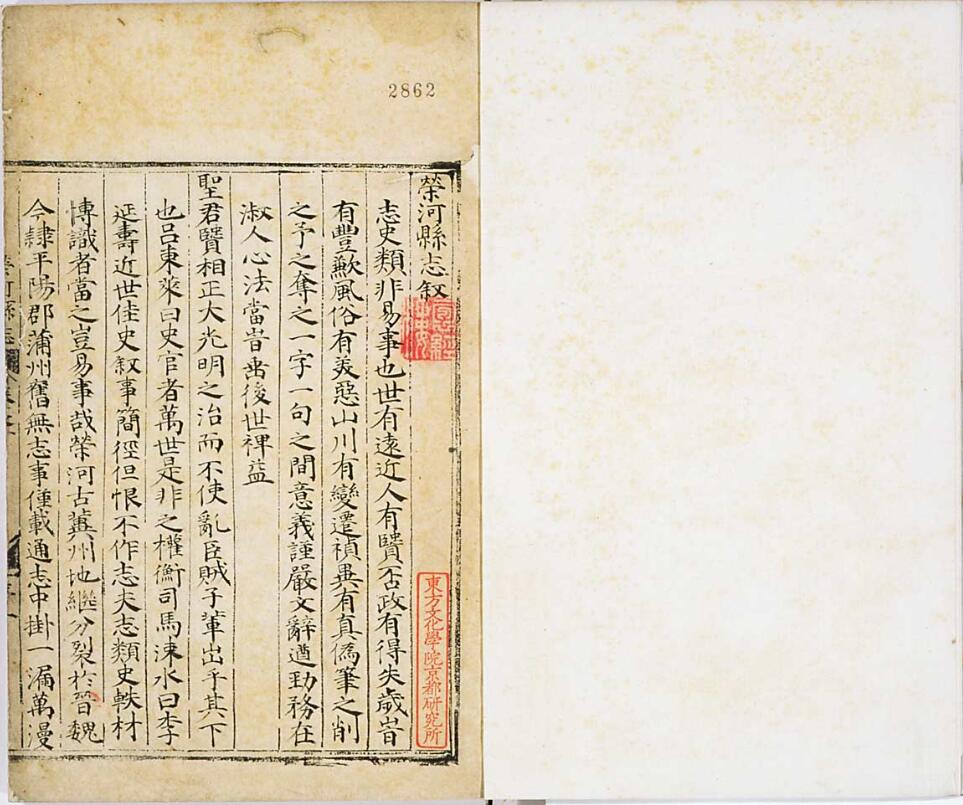 2862
榮河縣志叙
志史類非易事也世有遠近人有賢否政有得失歲旹
有豐歉風俗有美惡山川有變遷禎異有真僞筆之削
之予之奪之一字一句之間意義謹嚴文辭遒勁務在
淑人心法當旹垂後世裨益
聖君賢相正大光明之治而不使亂臣賊子輩出乎其下
也吕東萊曰史官者萬世是非之權衡司馬涑水曰李
延壽近世佳史叙事簡徑但恨不作志夫志類史軼材
博識者當之豈易事哉榮河古冀州地繼分裂於晉魏
今隷平陽郡蒲州舊無志事僅載通志中掛一漏萬漫
東方文化學院京都研究所